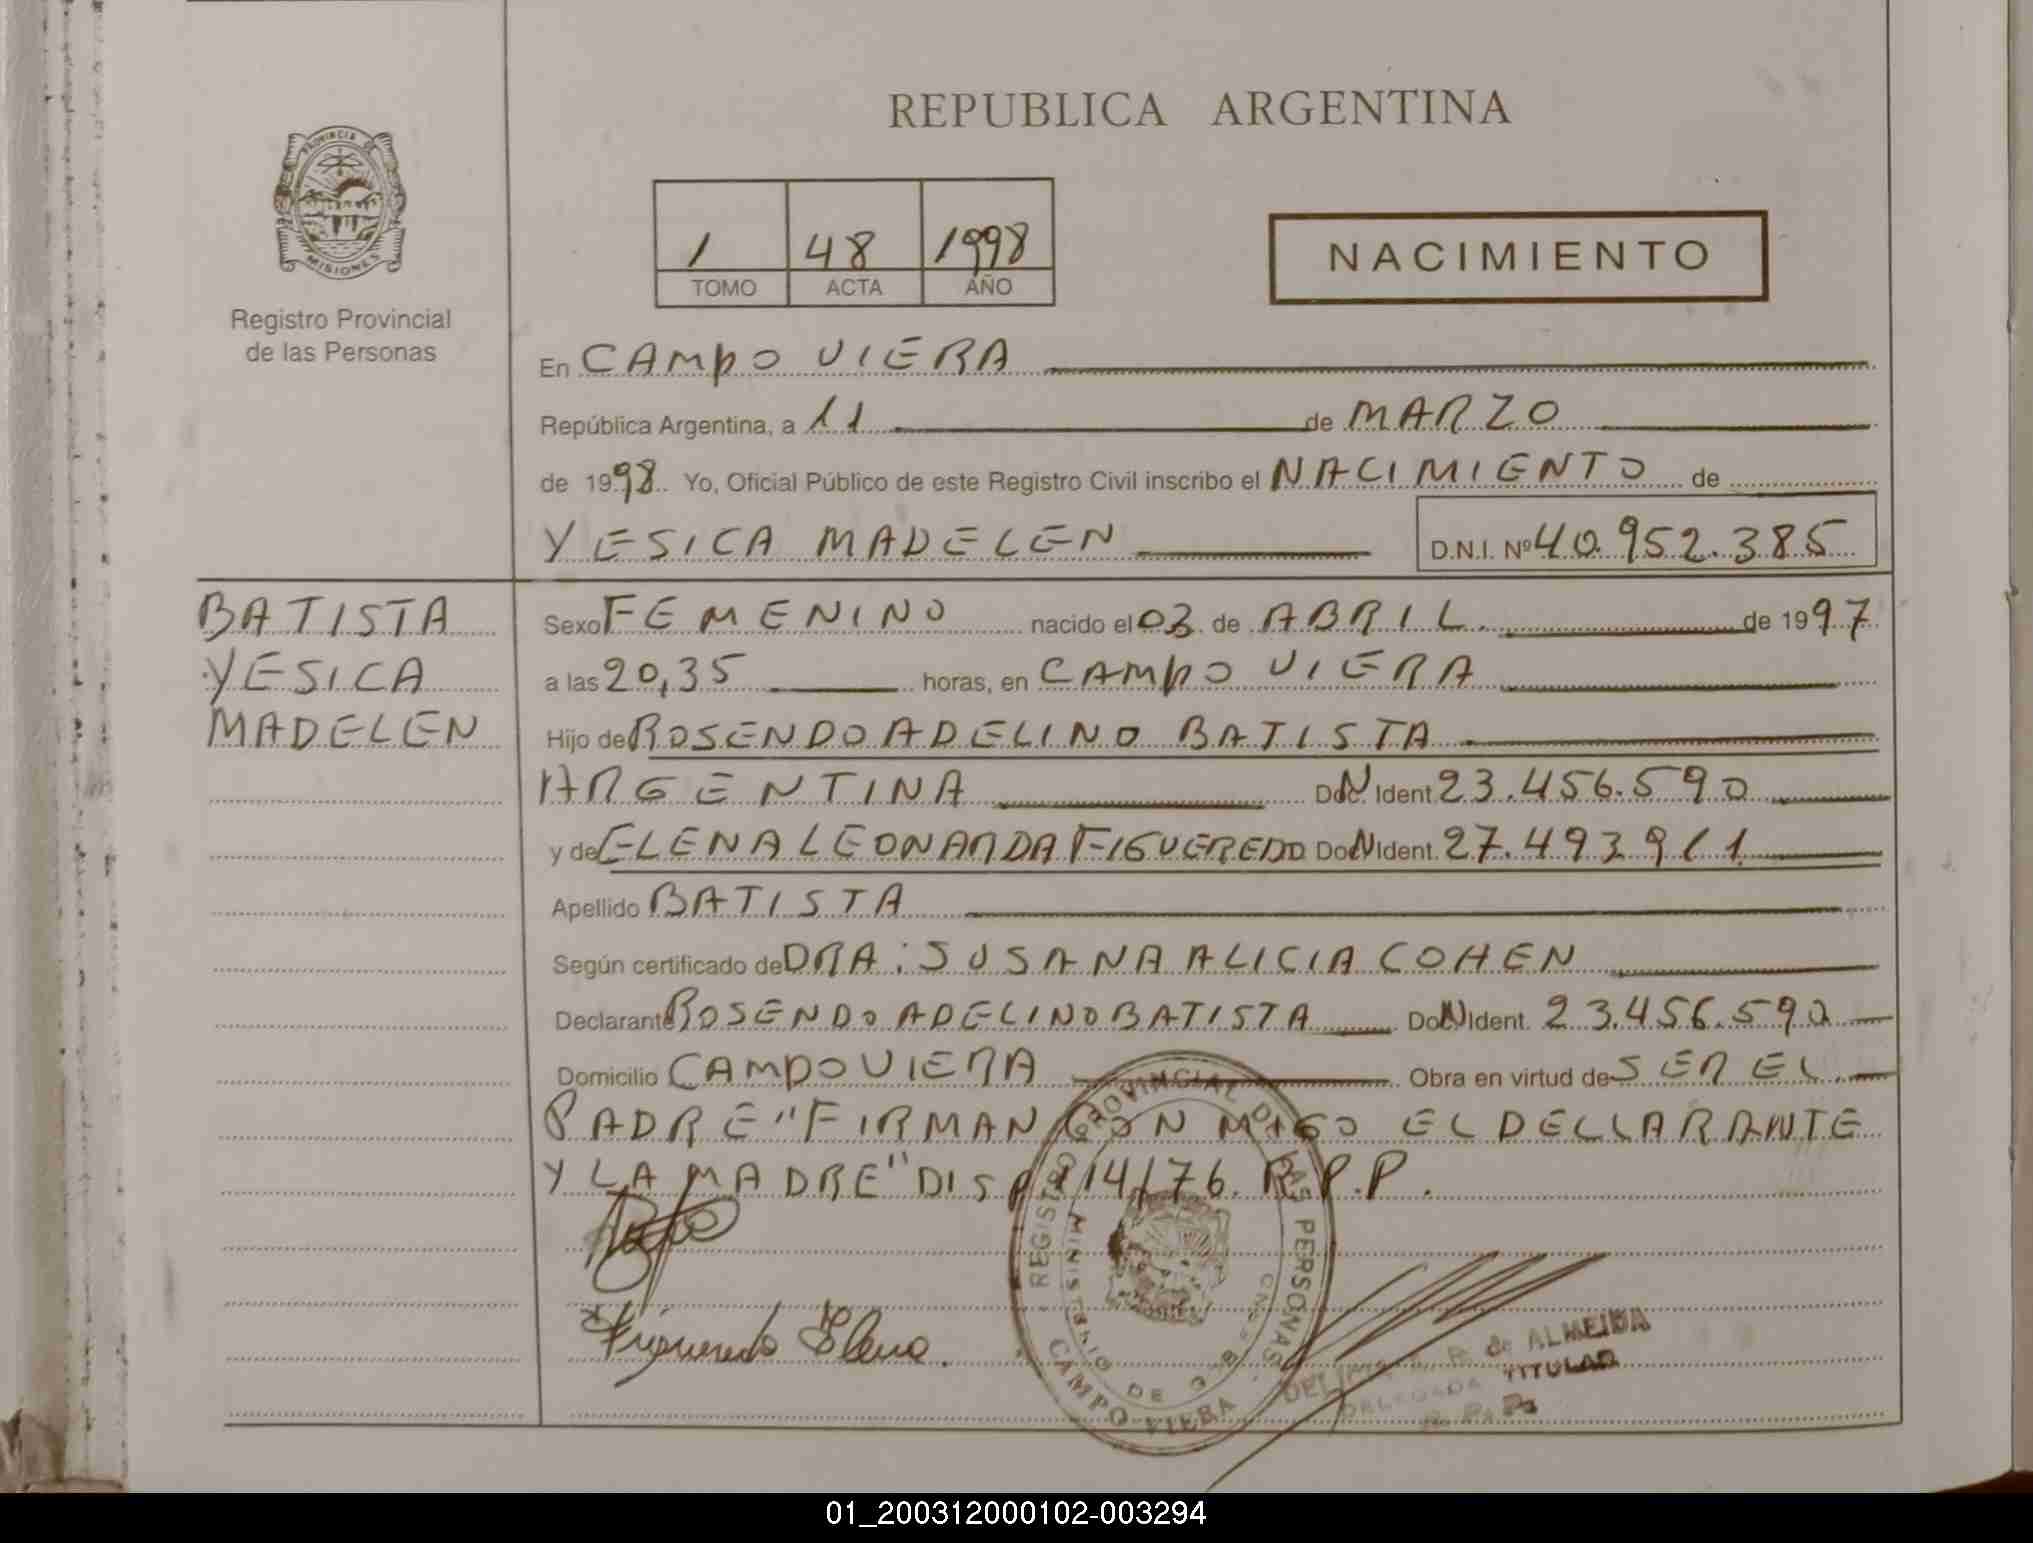 REPUBLICA ARGENTINA
PROVINCIA DE
MISIONES
Registro Provincial
de las Personas
1 48 1998
TOMO ACTA AÑO
NACIMIENTO
En CAMPO VIERA
República Argentina, a 11 de MARZO
de 1998 Yo, Oficial Público de este Registro Civil inscribo el NACIMIENTO de
YESICA MADELEN D.N.I. Nº 40.952.385
BATISTA
YESICA
MADELEN
Sexo FEMENINO nacido el 03 de ABRIL de 1997
a las 20,35 horas, en CAMPO VIERA
Hijo de ROSENDO ADELINO BATISTA
ARGENTINA Doc. Ident. 23.456.590
y de ELENA LEONARDA FIGUEREDO Doc. Ident. 27.493.911
Apellido BATISTA
Según certificado de DRA: SUSANA ALICIA COHEN
Declarante ROSENDO ADELINO BATISTA Doc. Ident. 23.456.590
Domicilio CAMPO VIERA Obra en virtud de SER EL
PADRE "FIRMAN CON MIGO EL DELLARANTE
Y LA MADRE" DISP 114/76. R.P.P.
Figueredo Elena.
REGISTRO PROVINCIAL DE LAS PERSONAS
MINISTERIO DE GOB
CAMPO VIERA
R. de ALMEIDA
DELEGADA TITULAR
R. P. P.
01_200312000102-003294